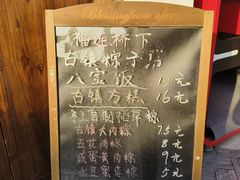 Blessing from afar
福连桥下
古镇粽子
八宝饭 1元
古镇方糕 16元
自制 粽
古镇大肉粽 7.5元
五花肉粽 8元
咸蛋黄肉粽 9元
小豆蜜枣粽 5元